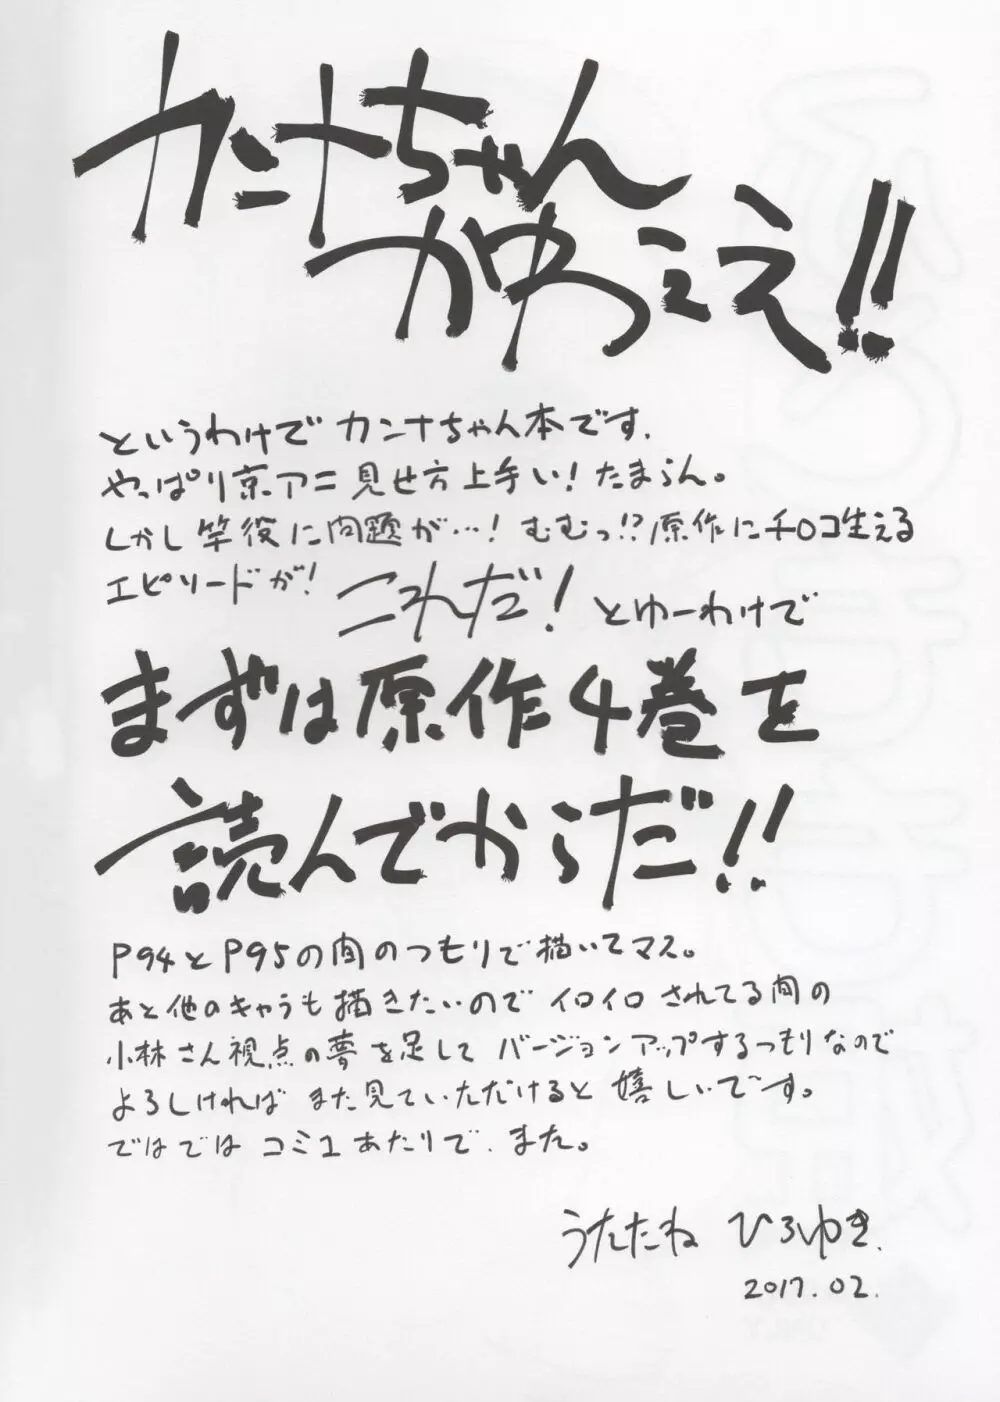 カンナちゃん
かわぇえ!!
というわけで カンナちゃん本です.
やっぱり京アニ見せ方上手い! たまらん。
しかし竿役に問題が…! むむっ!? 原作にチ○コ生える
エピソードが! これだ! とゆーわけで
まずは原作4巻を
読んでからだ!!
P94とP95の間のつもりで描いてマス。
あと他のキャラも描きたいので イロイロされてる間の
小林さん視点の夢を足して バージョンアップするつもりなので
よろしければ また見ていただけると 嬉しいです。
ではでは コミ1あたりで. また。
うたたね ひろゆき.
2017.02.